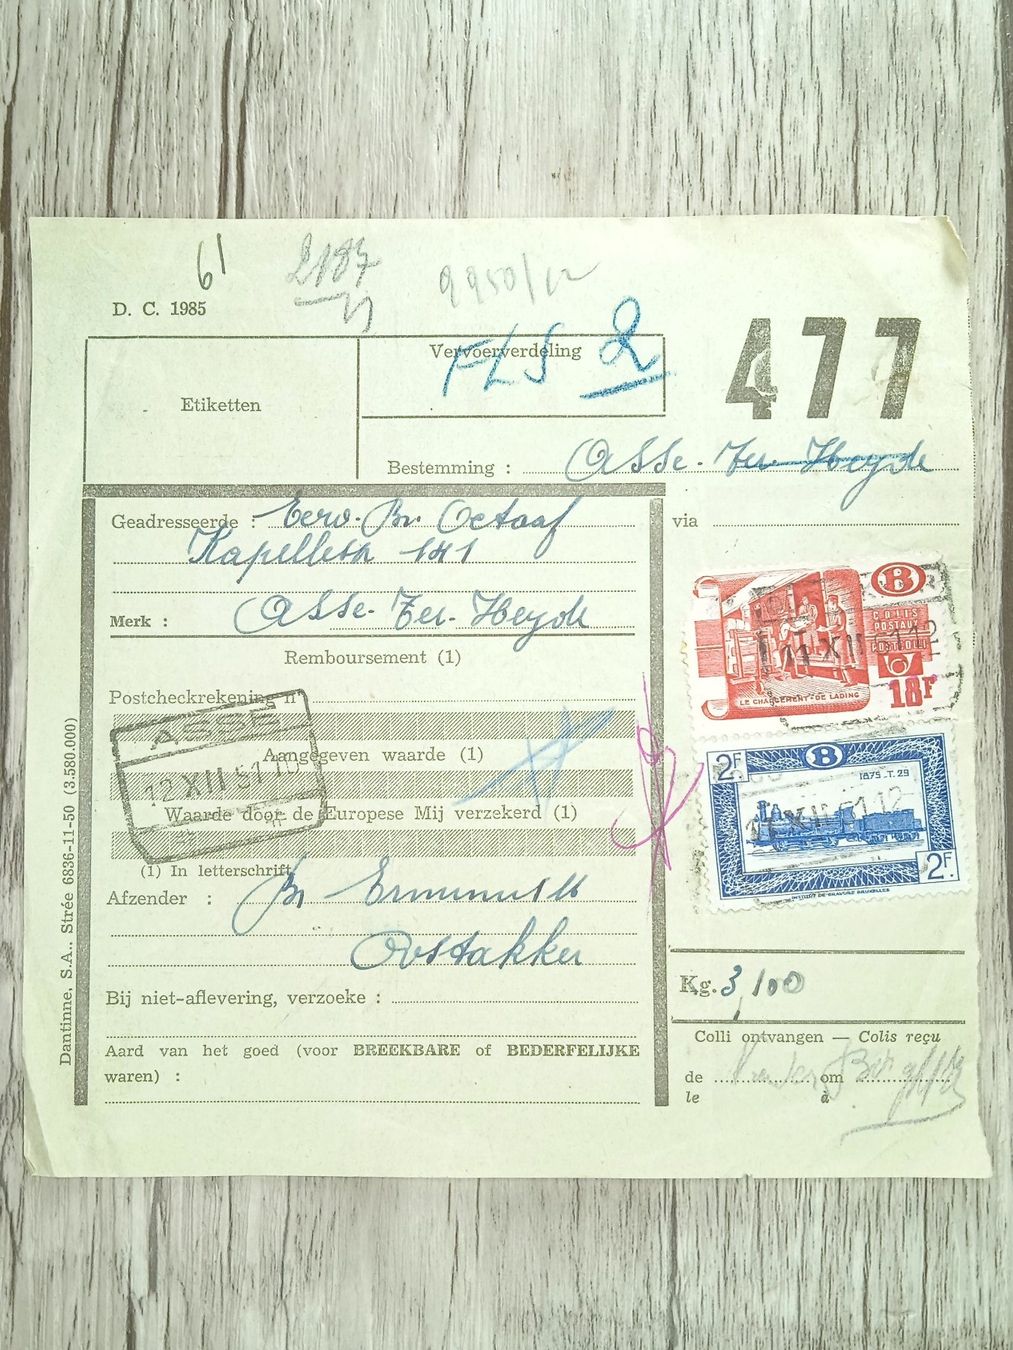 61
2187
D. C. 1985
Vervoerverdeling
FLS 2
477
Etiketten
Bestemming : Asse-Ter-Heyde
Geadresseerde : Eerw. Br. Octaaf
141
via
Merk : Asse-Ter-Heyde
Remboursement (1)
Postcheckrekening nr
ASSE
12 XII 51 10
Aangegeven waarde (1)
Waarde door de Europese Mij verzekerd (1)
(1) In letterschrift
Afzender : Br
Oostakker
Bij niet-aflevering, verzoeke :
Aard van het goed (voor BREEKBARE of BEDERFELIJKE
waren) :
Dantinne, S.A., Strée 6836-11-50 (3.580.000)
B
COLIS
POSTAUX
POSTCOLLI
11 XII 51 12
LE CHARGEMENT-DE LADING
18F
2F B
1875 .T. 29
11 XII 51 12
2F
INSTITUT DE GRAVURE BRUXELLES
Kg. 3,100
Colli ontvangen — Colis reçu
de om
le à